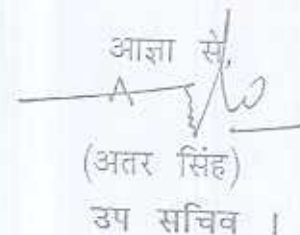 आज्ञा से,
(अतर सिंह)
उप सचिव ।